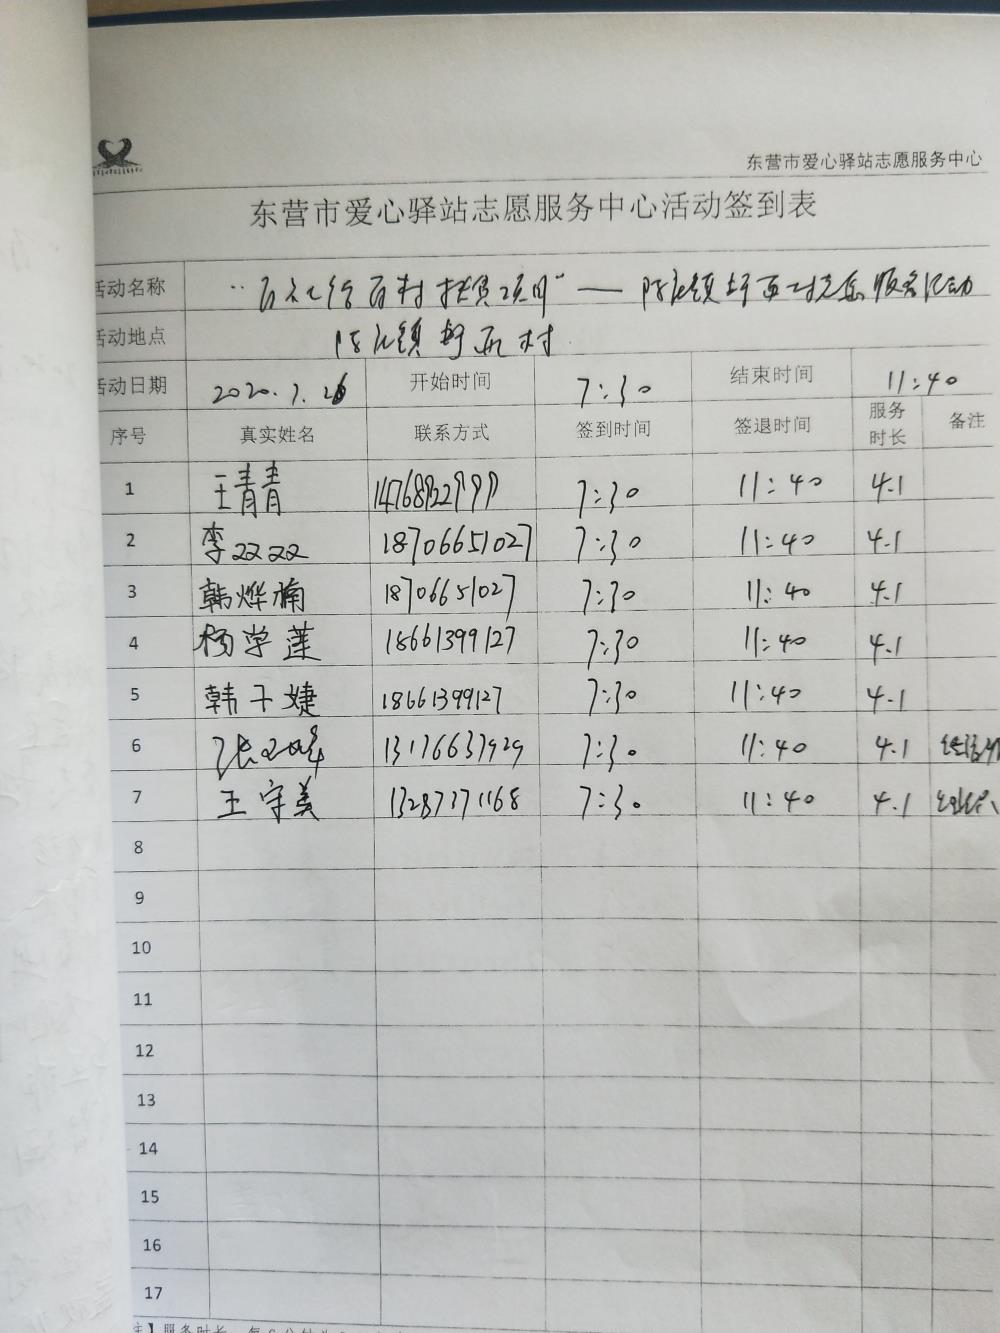 东营市爱心驿站志愿服务中心
东营市爱心驿站志愿服务中心活动签到表
活动名称 "百社行百村扶贫项目"——陈庄镇 志愿服务活动
活动地点 陈庄镇 村
活动日期 2020.7.26 开始时间 7:30 结束时间 11:40
序号 真实姓名 联系方式 签到时间 签退时间 服务时长 备注
1 王青青 7:30 11:40 4.1
2 李双双 18706651027 7:30 11:40 4.1
3 韩烨楠 18706651027 7:30 11:40 4.1
4 杨学莲 18661399127 7:30 11:40 4.1
5 韩子婕 18661399127 7:30 11:40 4.1
6 张 峰 13176637929 7:30 11:40 4.1
7 王守美 13287371168 7:30 11:40 4.1
8
9
10
11
12
13
14
15
16
17
注】服务时长